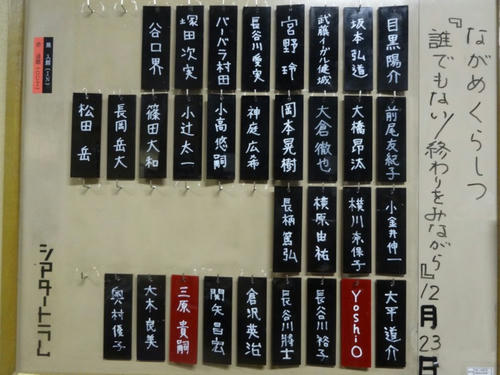 ながめくらしつ
『誰でもない/終わりをみながら』12月23日
目黒陽介
坂本弘道
武藤イーガル健城
宮野 玲
長谷川愛実
バーバラ村田
塚田次実
谷口界
前尾友紀子
大橋昂汰
大倉徹也
岡本晃樹
神庭広希
小高悠嗣
小辻太一
篠田大和
長岡岳大
松田 岳
小金井伸一
横川奈保子
榛原由祐
長柄篤弘
大平道介
YoshiO
長谷川裕子
長谷川將士
倉沢英治
関矢昌宏
三原貴嗣
大木良美
奥村優子
シアタートラム
黒 入館(IN)
赤 退館(OUT)